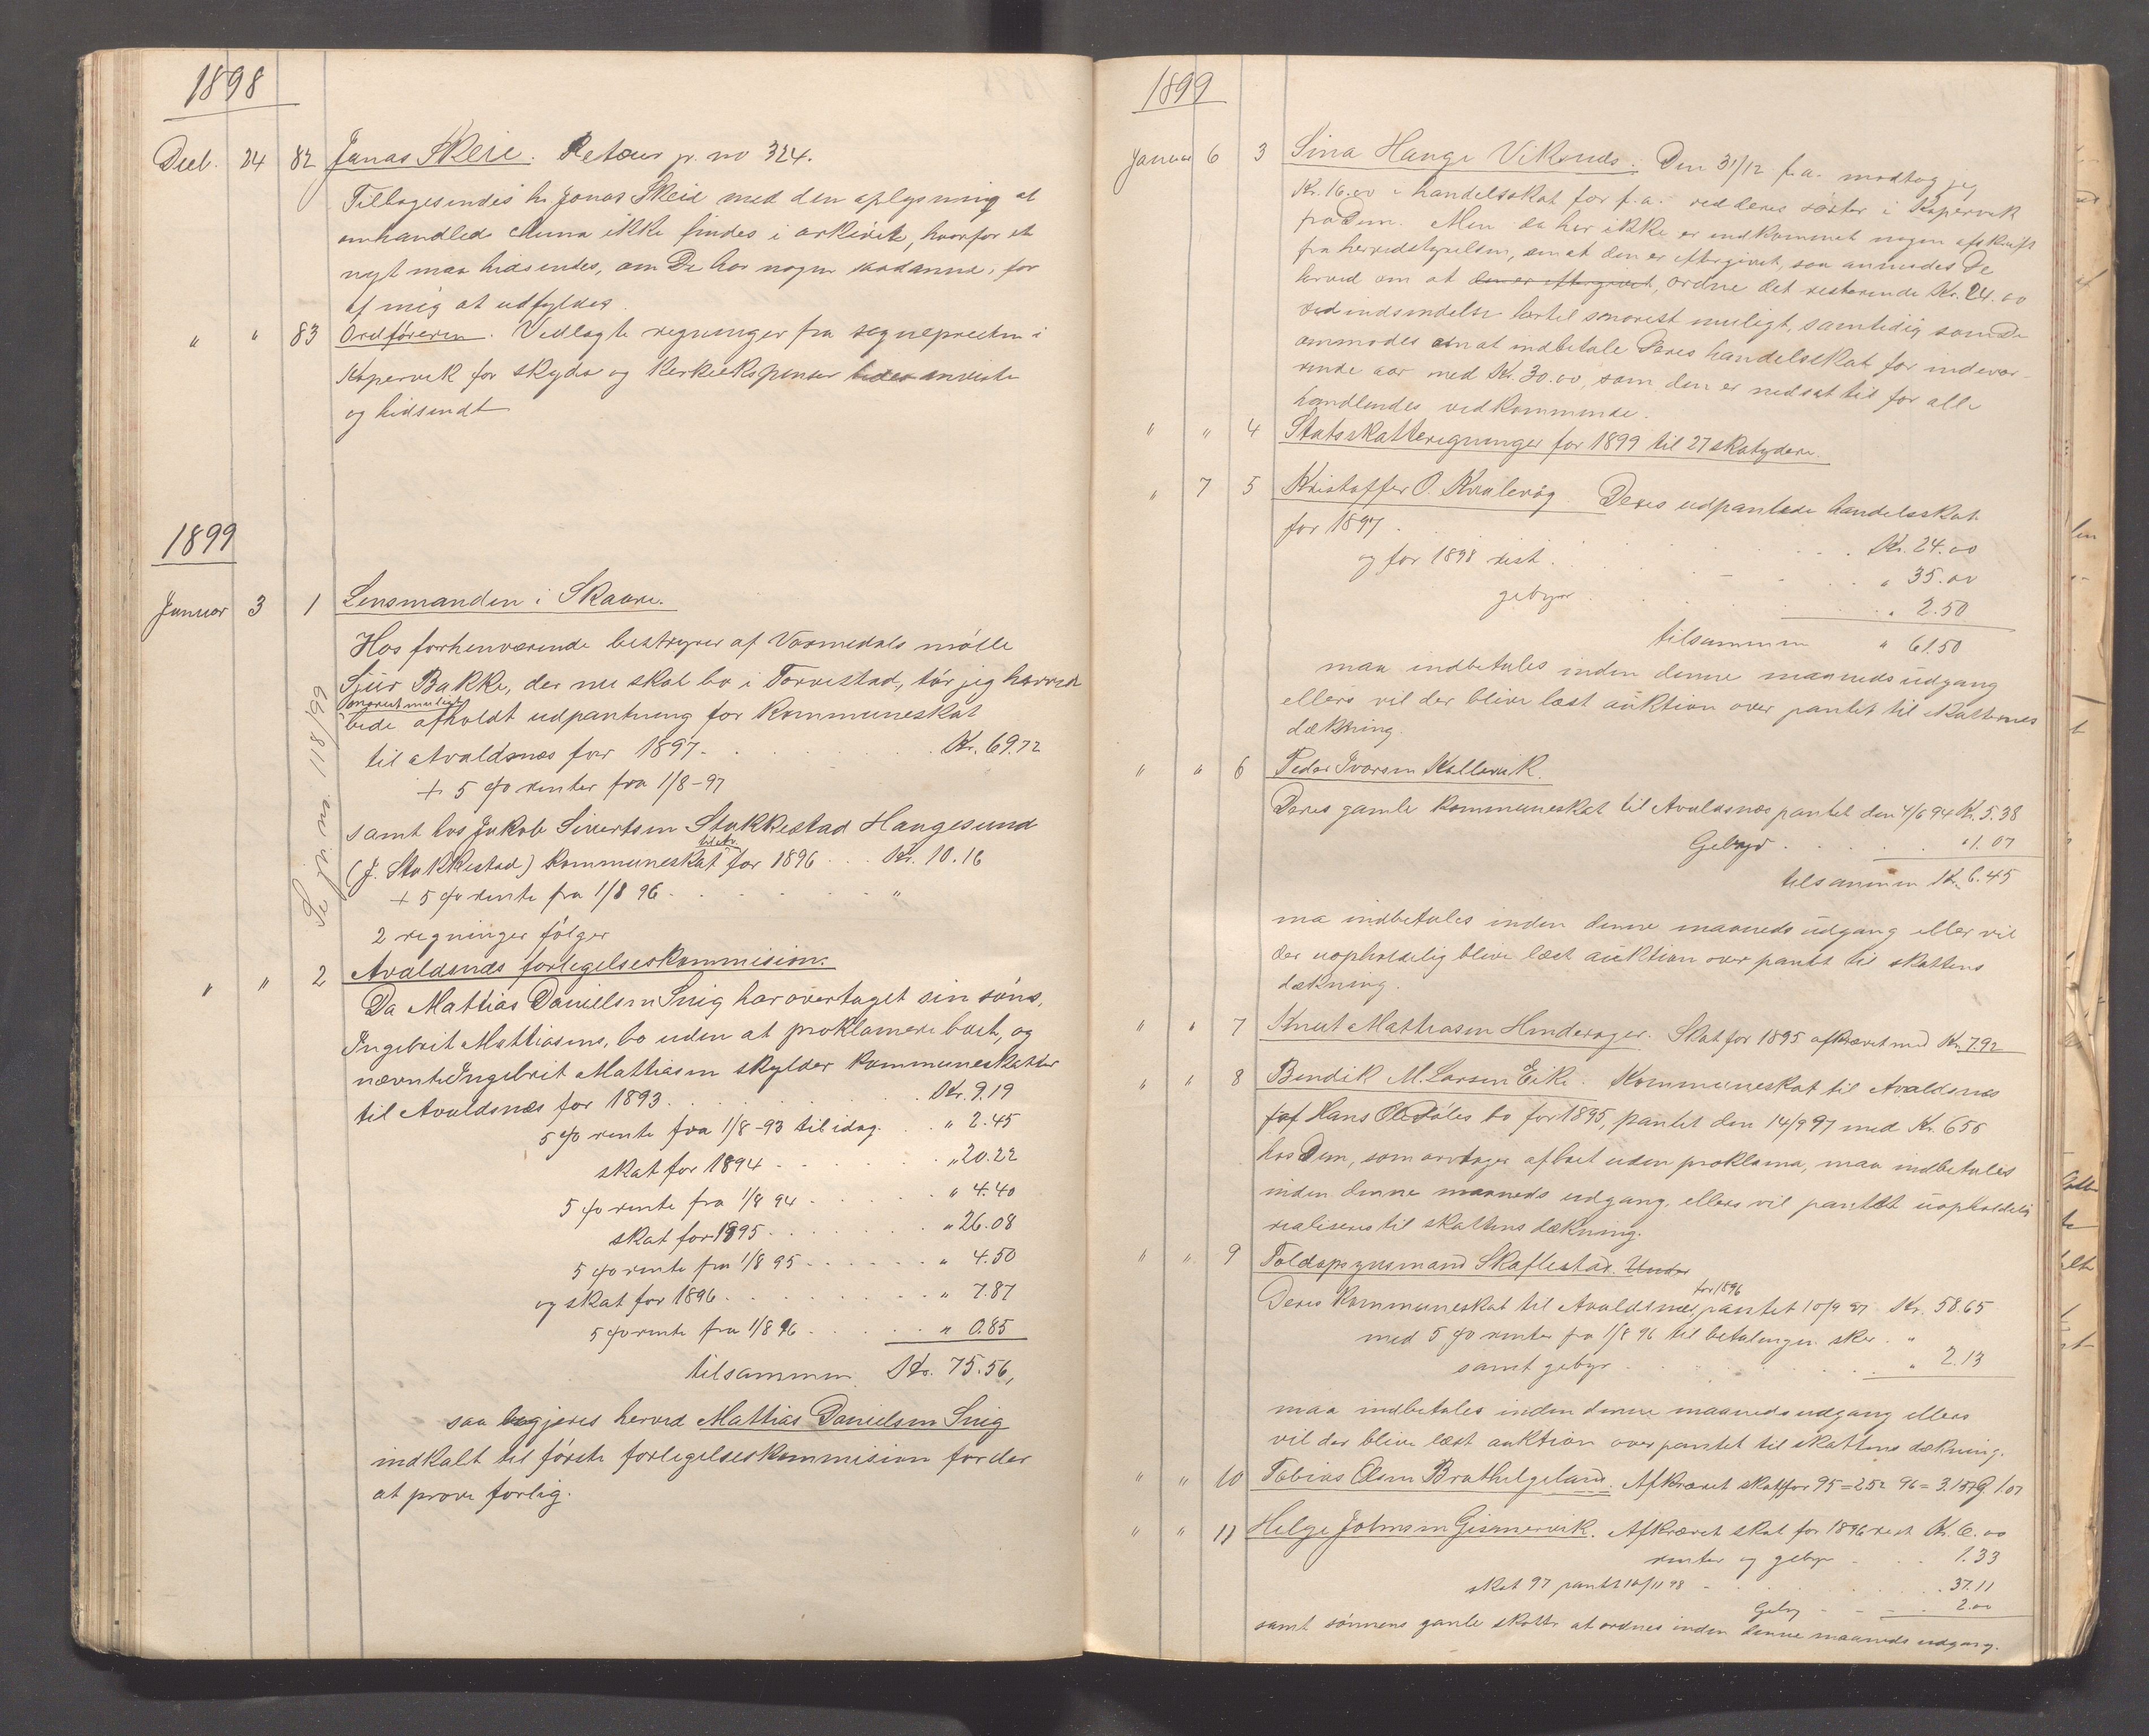 1898
Decb. 24 82 Jonas Skeie. Retour jr. no 324.
Tilbagesendes hr. Jonas Skeie med den oplysning at
omhandlede ikke findes i arkivet, hvorfor et
nyt maa hidsendes, om De har nogen saadanne, for
af mig at udfyldes.
" " 83 Ordføreren. Vedlagte regninger fra sogneprесten i
Kopervik for skyds og bedes anviste
og hidsendt
1899
Januar 3 1 Lensmanden i Skaare.
Hos forhenværende bestyrer af Vormedals mølle
Sjur Bakke, der nu skal bo i Torvestad, tør jeg herved
snarest muligt
bede afholdt udpantning for kommuneskat
til Avaldsnæs for 1897 . . . Kr. 69.72
+ 5 % renter fra 1/8-97
samt hos Jakob Sivertsen Stakkestad Haugesund
til Av.
(J. Stakkestad) kommuneskat for 1896 . . . Kr. 10.16
+ 5 % rente fra 1/8 96 . . . "
2 regninger følger
Se jr. no. 118/99
" " 2 Avaldsnæs forligelseskommision.
Da Mattias Danielsen Snig har overtaget sin søns,
Ingebrit Mattiasens, bo uden at proklamere boet, og
nævnte Ingebrit Mattiasen skylder kommuneskatter
til Avaldsnæs for 1893 . . . Kr. 9.19
5 % rente fra 1/8-93 til idag . . . " 2.45
skat for 1894 . . . " 20.22
5 % rente fra 1/8 94 . . . " 4.40
skat for 1895 . . . " 26.08
5 % rente fra 1/8 95 . . . " 4.50
og skat for 1896 . . . " 7.87
5 % rente fra 1/8 96 . . . " 0.85
tilsammen Kr. 75.56,
saa begjæres herved Mattias Danielsen Snig
indkalt til første forligelseskommision for der
at prøve forlig.
1899
Januar 6 3 Sina Hauge Viksunds. Den 31/12 f.a. modtog jeg
Kr. 16.00 i handelsskat for f.a. ved deres søster i Kopervik
fra Dem. Men da her ikke er indkommet nogen afskrift
fra herredstyrelsen, om at den er eftergivet, saa anmodes De
herved om at den er eftergivet, ordne det resterende Kr. 24.00
ved indsendelse hertil snarest muligt, samtidig som De
anmodes om at indbetale Deres handelsskat for indevæ-
rende aar med Kr. 30.00, som den er nedsat til for alle
handlendes vedkommende.
" " 4 Statsskatteregninger for 1899 til 27 skatydere.
" 7 5 Kristoffer O. Kvalevåg. Deres udpantede handelsskat
for 1897 . . . Kr. 24.00
og for 1898 rest . . . " 35.00
gebyr . . . " 2.50
tilsammen " 61.50
maa indbetales inden denne maaneds udgang
ellers vil der blive læst auktion over pantet til skatternes
dækning.
" " 6 Peder Ivarsen Kallevik.
Deres gamle kommuneskat til Avaldsnæs pantet den 7/6 94 Kr. 5.38
Gebyr . . . " 1.07
tilsammen Kr. 6.45
ma indbetales inden denne maaneds udgang eller vil
der uopholdelig blive læst auktion over pantet til skattens
dækning.
" " 7 Knut Mattiasen Hinderager. Skat for 1895 afkrævet med Kr. 7.92
" " 8 Bendik M. Larsen Eike. Kommuneskat til Avaldsnæs
for 1895, pantet den 14/9 97 med Kr. 656
hos Dem, som overtager af boet uden proklama, maa indbetales
inden denne maaneds udgang, ellers vil pantet uopholdelig
realiseres til skattens dækning.
" " 9 Toldopsynsmand Skaflestad. Under
for 1896
Deres kommuneskat til Avaldsnæs pantet 10/9 97 Kr. 58.65
med 5 % renter fra 1/8 96 til betalingen sker . "
samt gebyr . . . " 2.13
maa indbetales inden denne maaneds udgang ellers
vil der blive læst auktion over pantet til skattens dækning.
" " 10 Tobias Olsen Brathelgeland. Afkrævet skat for 95 = 2.52 96 = 3.15 G. 1.07
" " 11 Helge Johnsen Gismervik. Afkrævet skat for 1896 rest Kr. 6.00
renter og gebyr . . . 1.33
skat 97 pantet 10/11 98 . . . 37.11
Geby . . . 2.00
samt sønnens gamle skatter at ordnes inden denne maaneds udgang.